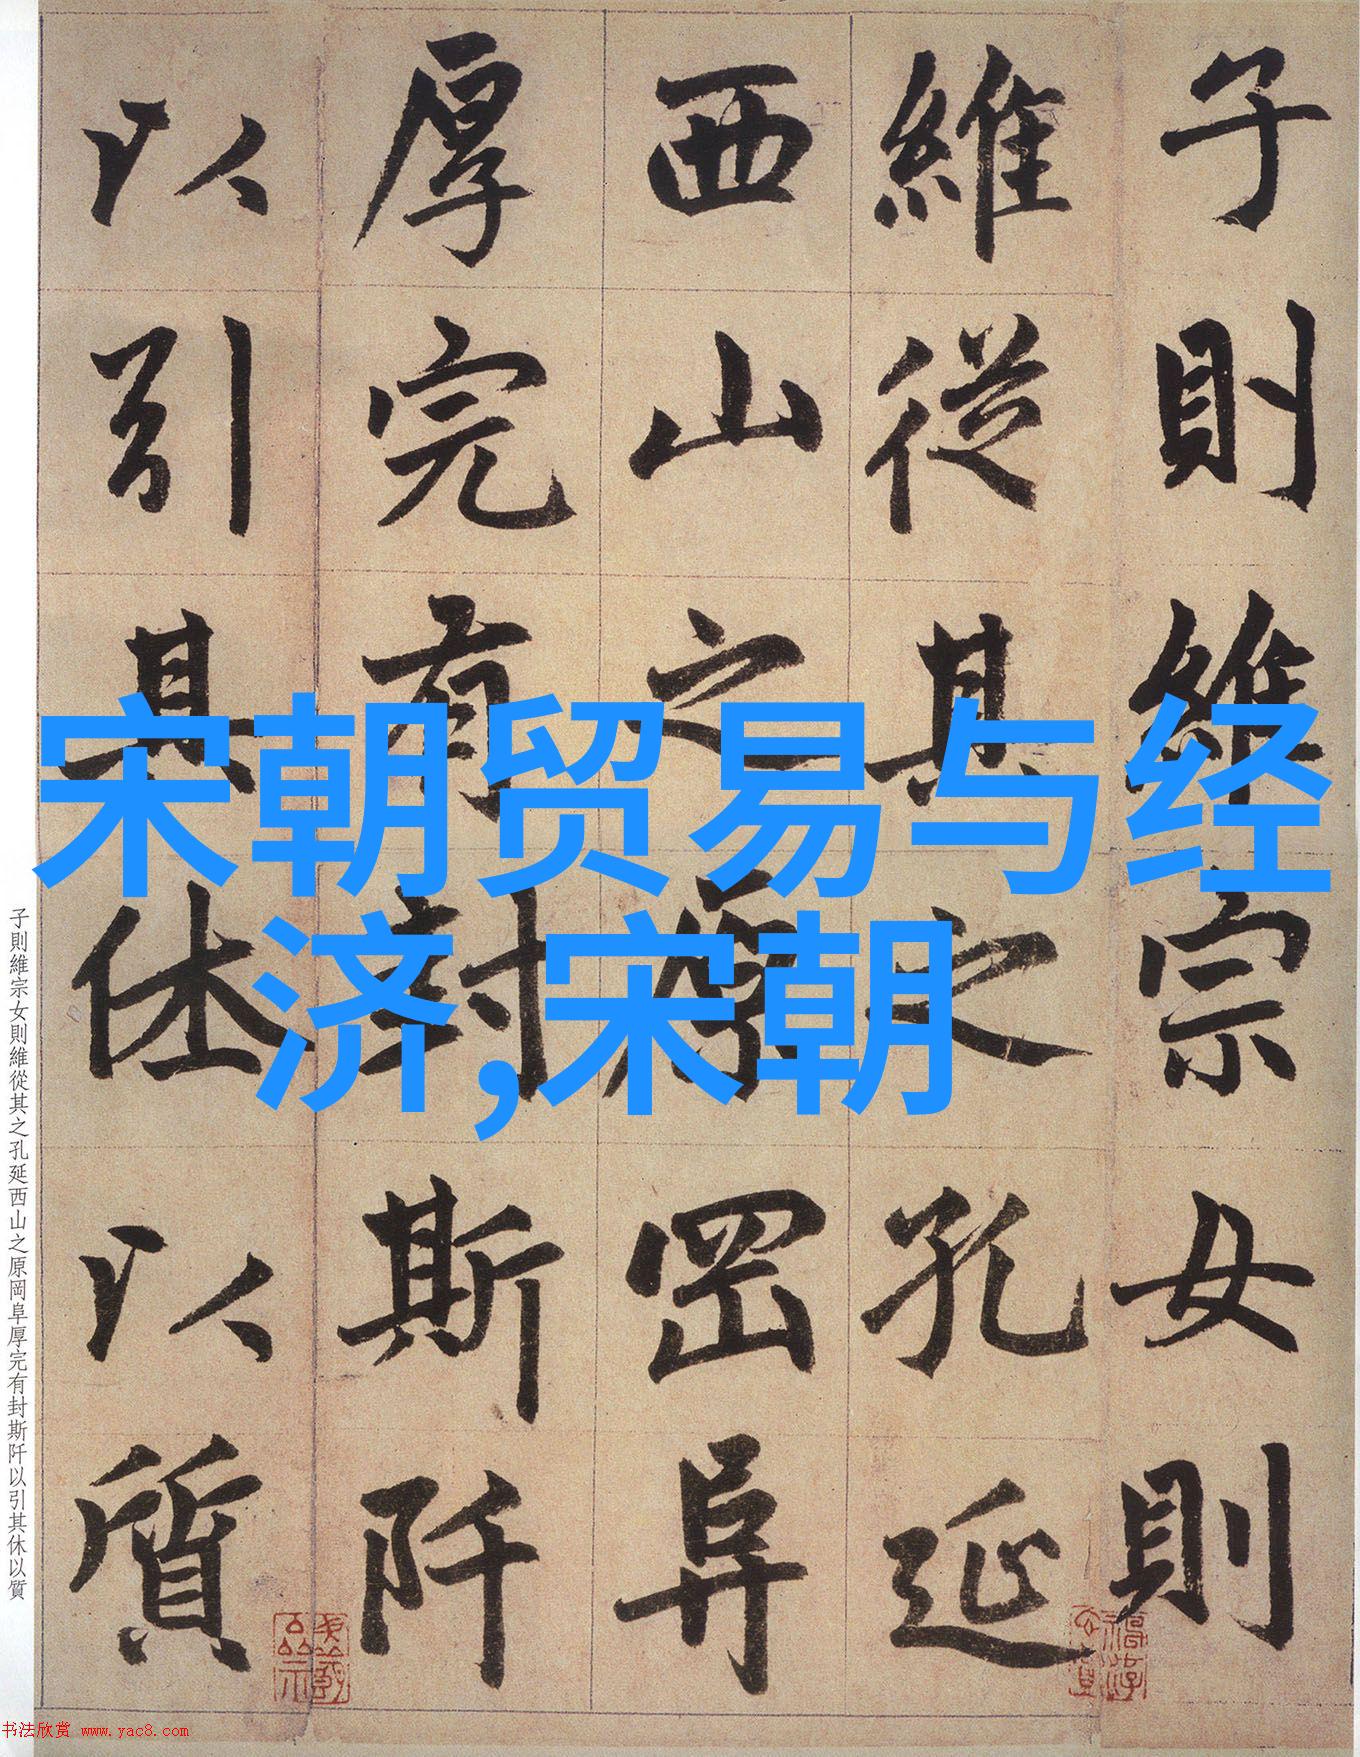 子則維宗女則
維從其之孔延
西山之原岡阜
厚完有封斯阡
以引其休以質
宋朝贸易与经
济,宋朝
子則維宗女則維從其之孔延西山之原岡阜厚完有封斯阡以引其休以質
书法欣赏 www.yac8.com